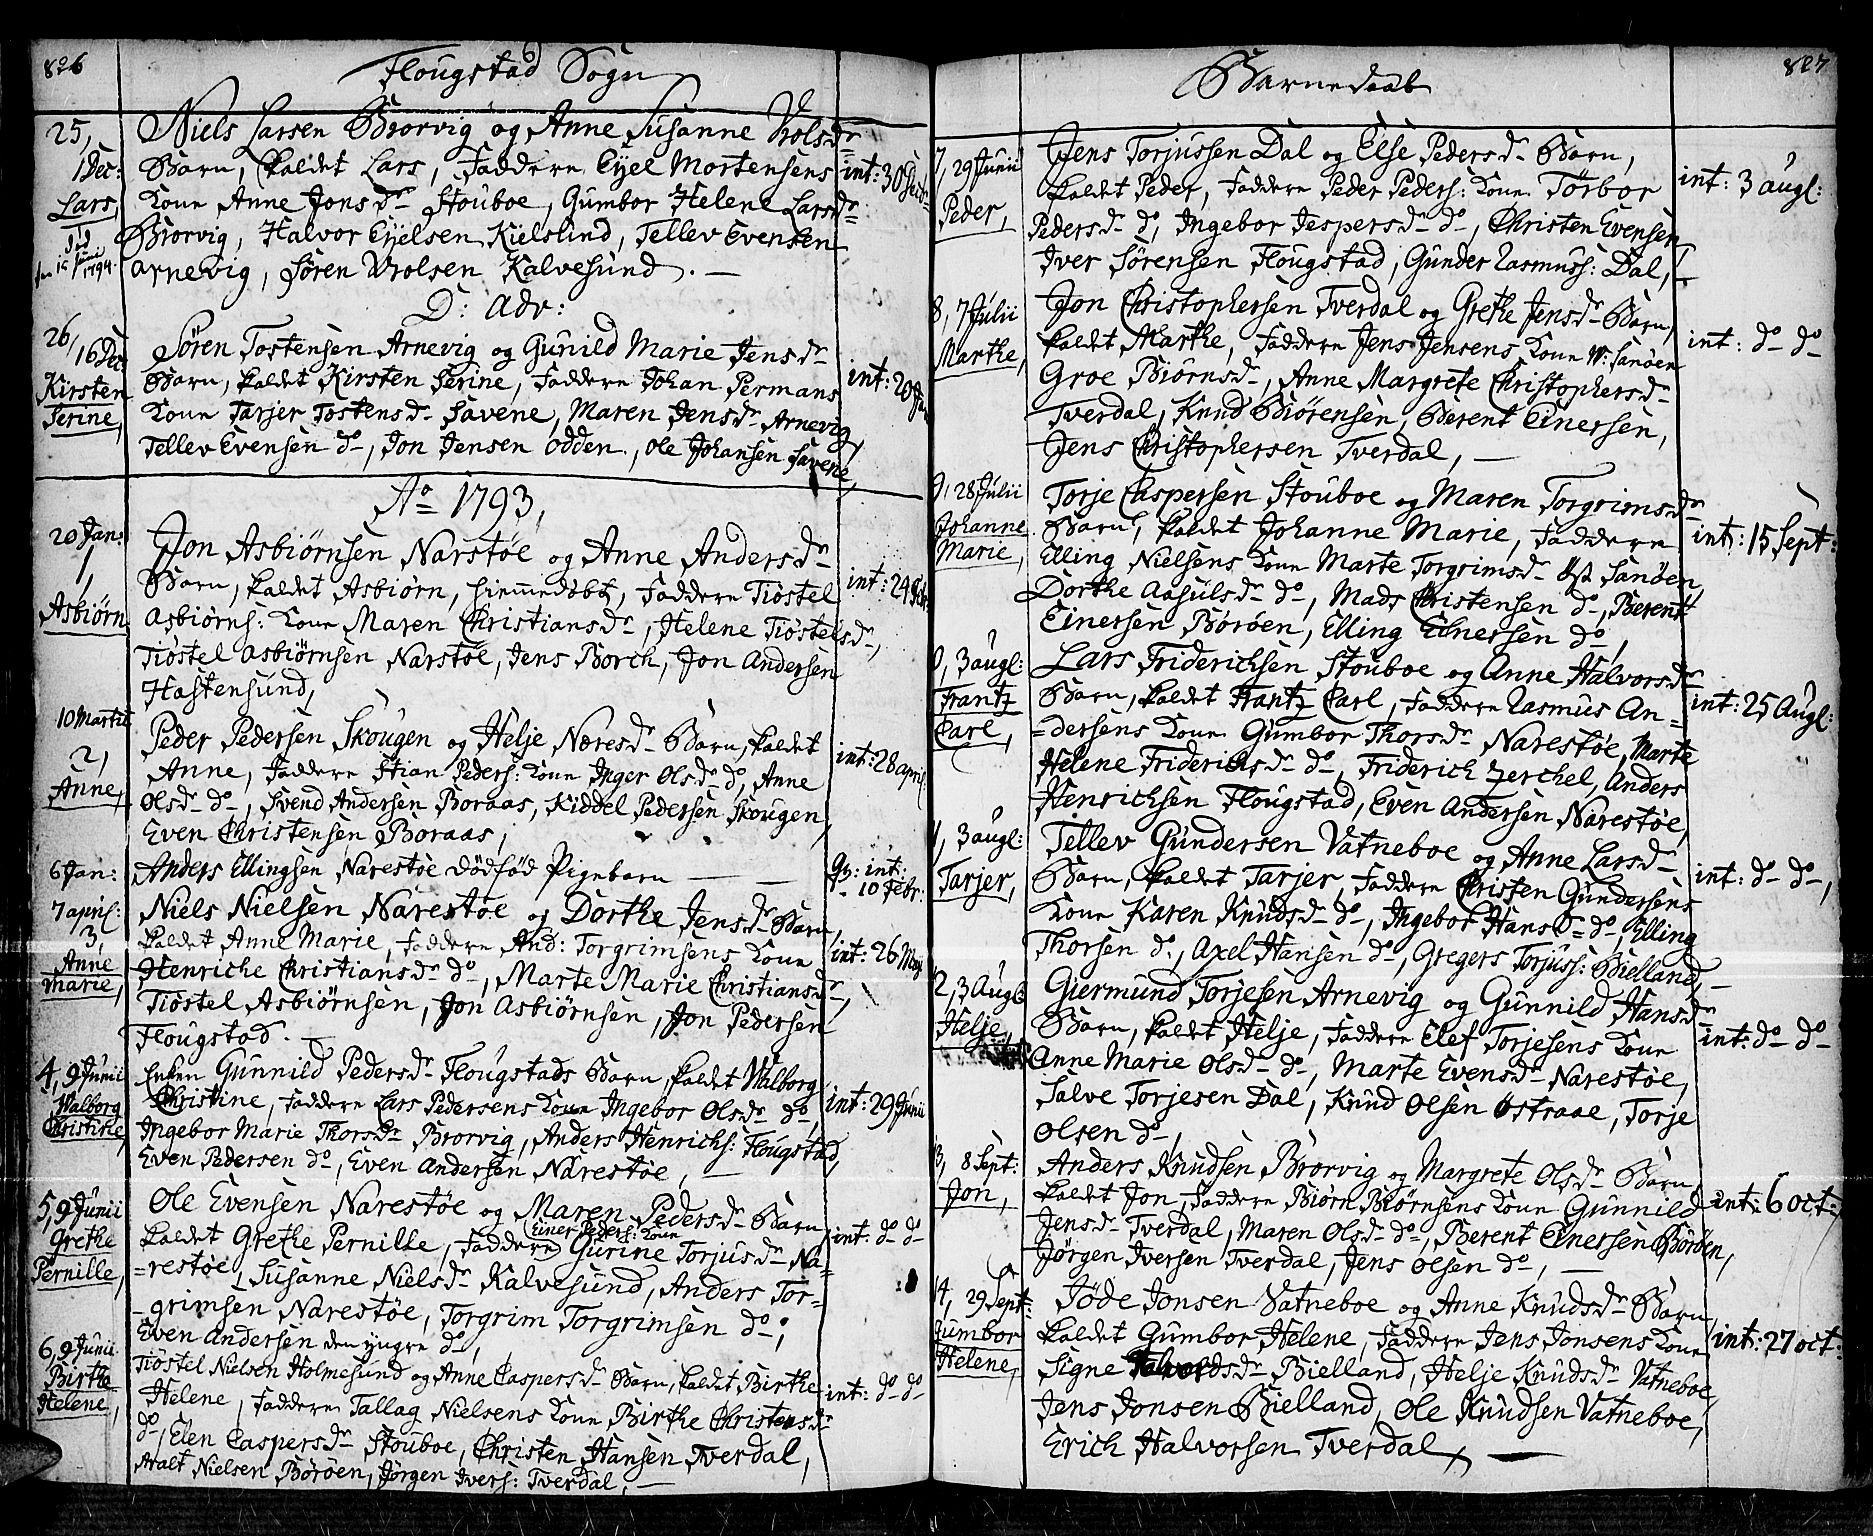 826
Flougstad Sogn
25,
1 Dec:
Lars,
død
den 15 Junii
1794.
Niels Larsen Brorvig og Anne Susanne Vrolsdr
Barn, kaldet Lars, Faddere Eyel Mortensens
Kone Anne Jonsdr Stouboe, Gumbor Helene Larsdr
Brorvig, Halvor Eyelsen Kielslind, Tellev Evensen
Arnevig, Søren Vrolsen Kalvesund. —
int: 30
D: Adv:
26,
16 Dec:
Kirsten
Serine,
Søren Tostensen Arnevig og Gunild Marie Jensdr
Barn, kaldet Kirsten Serine, Faddere Johan Permans
Kone Tarjer Tostensdr Savene, Maren Jensdr Arnevig,
Tellev Evensen do, Jon Jensen Odden, Ole Johansen Savene,
int: 20 Jan
Ao 1793,
20 Jan:
1,
Asbiørn
Jon Asbiørnsen Narstøe og Anne Andersdr
Barn, kaldet Asbiørn, hiemmedøbt, Faddere Tiøstel
Asbiørns: Kone Maren Christiansdr, Helene Tiøstelsdr,
Tiøstel Asbiørnsen Narstøe, Jens Borch, Jon Andersen
Hastensund,
int: 24 Febr.
10 Martii
2,
Anne,
Peder Pedersen Skougen og Helje Næresdr Barn, kaldet
Anne, Faddere Stian Peders: Kone Inger Olsdr do, Anne
Olsdr do, Svend Andersen Boraas, Kiddel Pedersen Skougen,
Even Christensen Boraas,
int: 28 april:
6 Jan:
Anders Ellingsen Narestøe dødfød Pigebarn —
int:
10 Febr:
7 april:
3,
Anne
Marie,
Niels Nielsen Narestøe og Dorthe Jensdr Barn,
kaldet Anne Marie, Faddere And: Torgrimsens Kone
Henriche Christiansdr do, Marte Marie Christiansdr,
Tiøstel Asbiørnsen, Jon Asbiørnsen, Jon Pedersen
Flougstad. —
int: 26 Maj
4, 9 Junii
Walborg
Christine,
Enken Gunnild Pedersdr Flougstads Barn, kaldet Walborg
Christine, Faddere Lars Pedersens Kone Ingebor Olsdr do,
Ingebor Marie Thorsdr Brorvig, Anders Henrichs: Flougstad,
Even Pedersen do, Even Andersen Narestøe, —
int: 29 Junii
5, 9 Junii
Grethe
Pernille,
Ole Evensen Narestøe og Maren Pedersdr Barn,
Einer Peders: Kone
kaldet Grethe Pernille, Faddere Gurine Torjusdr Na=
=restøe, Susanne Nielsdr Kalvesund, Anders Tor=
=grimsen Narestøe, Torgrim Torgrimsen do,
Even Andersen den yngre do,
int: do do
6, 9 Junii
Birthe
Helene,
Tiøstel Nielsen Holmesund og Anne Caspersdr Barn, kaldet Birthe
Helene, Faddere Tallag Nielsens Kone Birthe Christensdr
do, Elen Caspersdr Stouboe, Christen Hansen Tverdal,
Aalt Nielsen Børøen, Jørgen Ivers: Tverdal, —
int: do do
827
Barnedaab
7, 29 Junii
Peder,
Jens Torjussen Dal og Else Pedersdr Barn,
kaldet Peder, Faddere Peder Peders: Kone Torbor
Pedersdr do, Ingebor Jespersdr do, Christen Evensen,
Iver Sørensen Flougstad, Gunder Rasmuss: Dal, —
int: 3 augl:
8, 7 Julii
Marthe,
Jon Christophersen Tverdal og Grethe Jensdr Barn,
kaldet Marthe, Faddere Jens Jensens Kone W: Sanøen
Groe Biørnsdr, Anne Margrete Christophersdr
Tverdal, Knud Biørensen, Berent Einersen,
Jens Christophersen Tverdal, —
int: do do
9, 28 Julii
Johanne
Marie,
Torje Caspersen Stouboe og Maren Torgrimsdr
Barn, kaldet Johanne Marie, Faddere
Elling Nielsens Kone Marte Torgrimsdr Øst Sanøen,
Dorthe Aasulsdr do, Mads Christensen do, Berent
Einersen Børøen, Elling Einersen do,
int: 15 Sept:
0, 3 augl:
Frantz
Carl,
Lars Friderichsen Stouboe og Anne Halvorsdr
Barn, kaldet Frantz Carl, Faddere Rasmus An=
=dersens Kone Gumbor Thorsdr Narestøe, Marte
Helene Friderichsdr do, Friderich Zerchel, Anders
Henrichsen Flougstad, Even Andersen Narestøe,
int: 25 Augl:
1, 3 augl:
Tarjer,
Tellev Gundersen Vatneboe og Anne Larsdr
Barn, kaldet Tarjer, Faddere Christen Gundersens
Kone Karen Knudsdr do, Ingebor Hansdr do, Elling
Thorsen do, Axel Hansen do, Gregers Torjuss: Bielland, —
int: do do,
2, 3 Augl:
Helje
Giermund Torjesen Arnevig og Gunnild Hansdr
Barn, kaldet Helje, Faddere Elef Torjesens Kone
Anne Marie Olsdr do, Marte Evensdr Narestøe,
Salve Torjesen Dal, Knud Olsen Østraae, Torje
Olsen do,
int: do do
3, 8 Sept:
Jon,
Anders Knudsen Brorvig og Margrete Olsdr Barn,
kaldet Jon, Faddere Biørn Biørnsens Kone Gunnild
Jensdr Tverdal, Maren Olsdr do, Berent Einersen Børøen,
Jørgen Iversen Tverdal, Jens Olsen do, —
int: 6 oct:
4, 29 Sept:
Gumbor
Helene,
Jøde Jonsen Vatneboe og Anne Knudsdr Barn,
kaldet Gumbor Helene, Faddere Jens Jonsens Kone
Signe Bielland, Helje Knudsdr Vatneboe,
Jens Jonsen Bielland, Ole Knudsen Vatneboe,
Erich Halvorsen Tverdal, —
int: 27 oct: